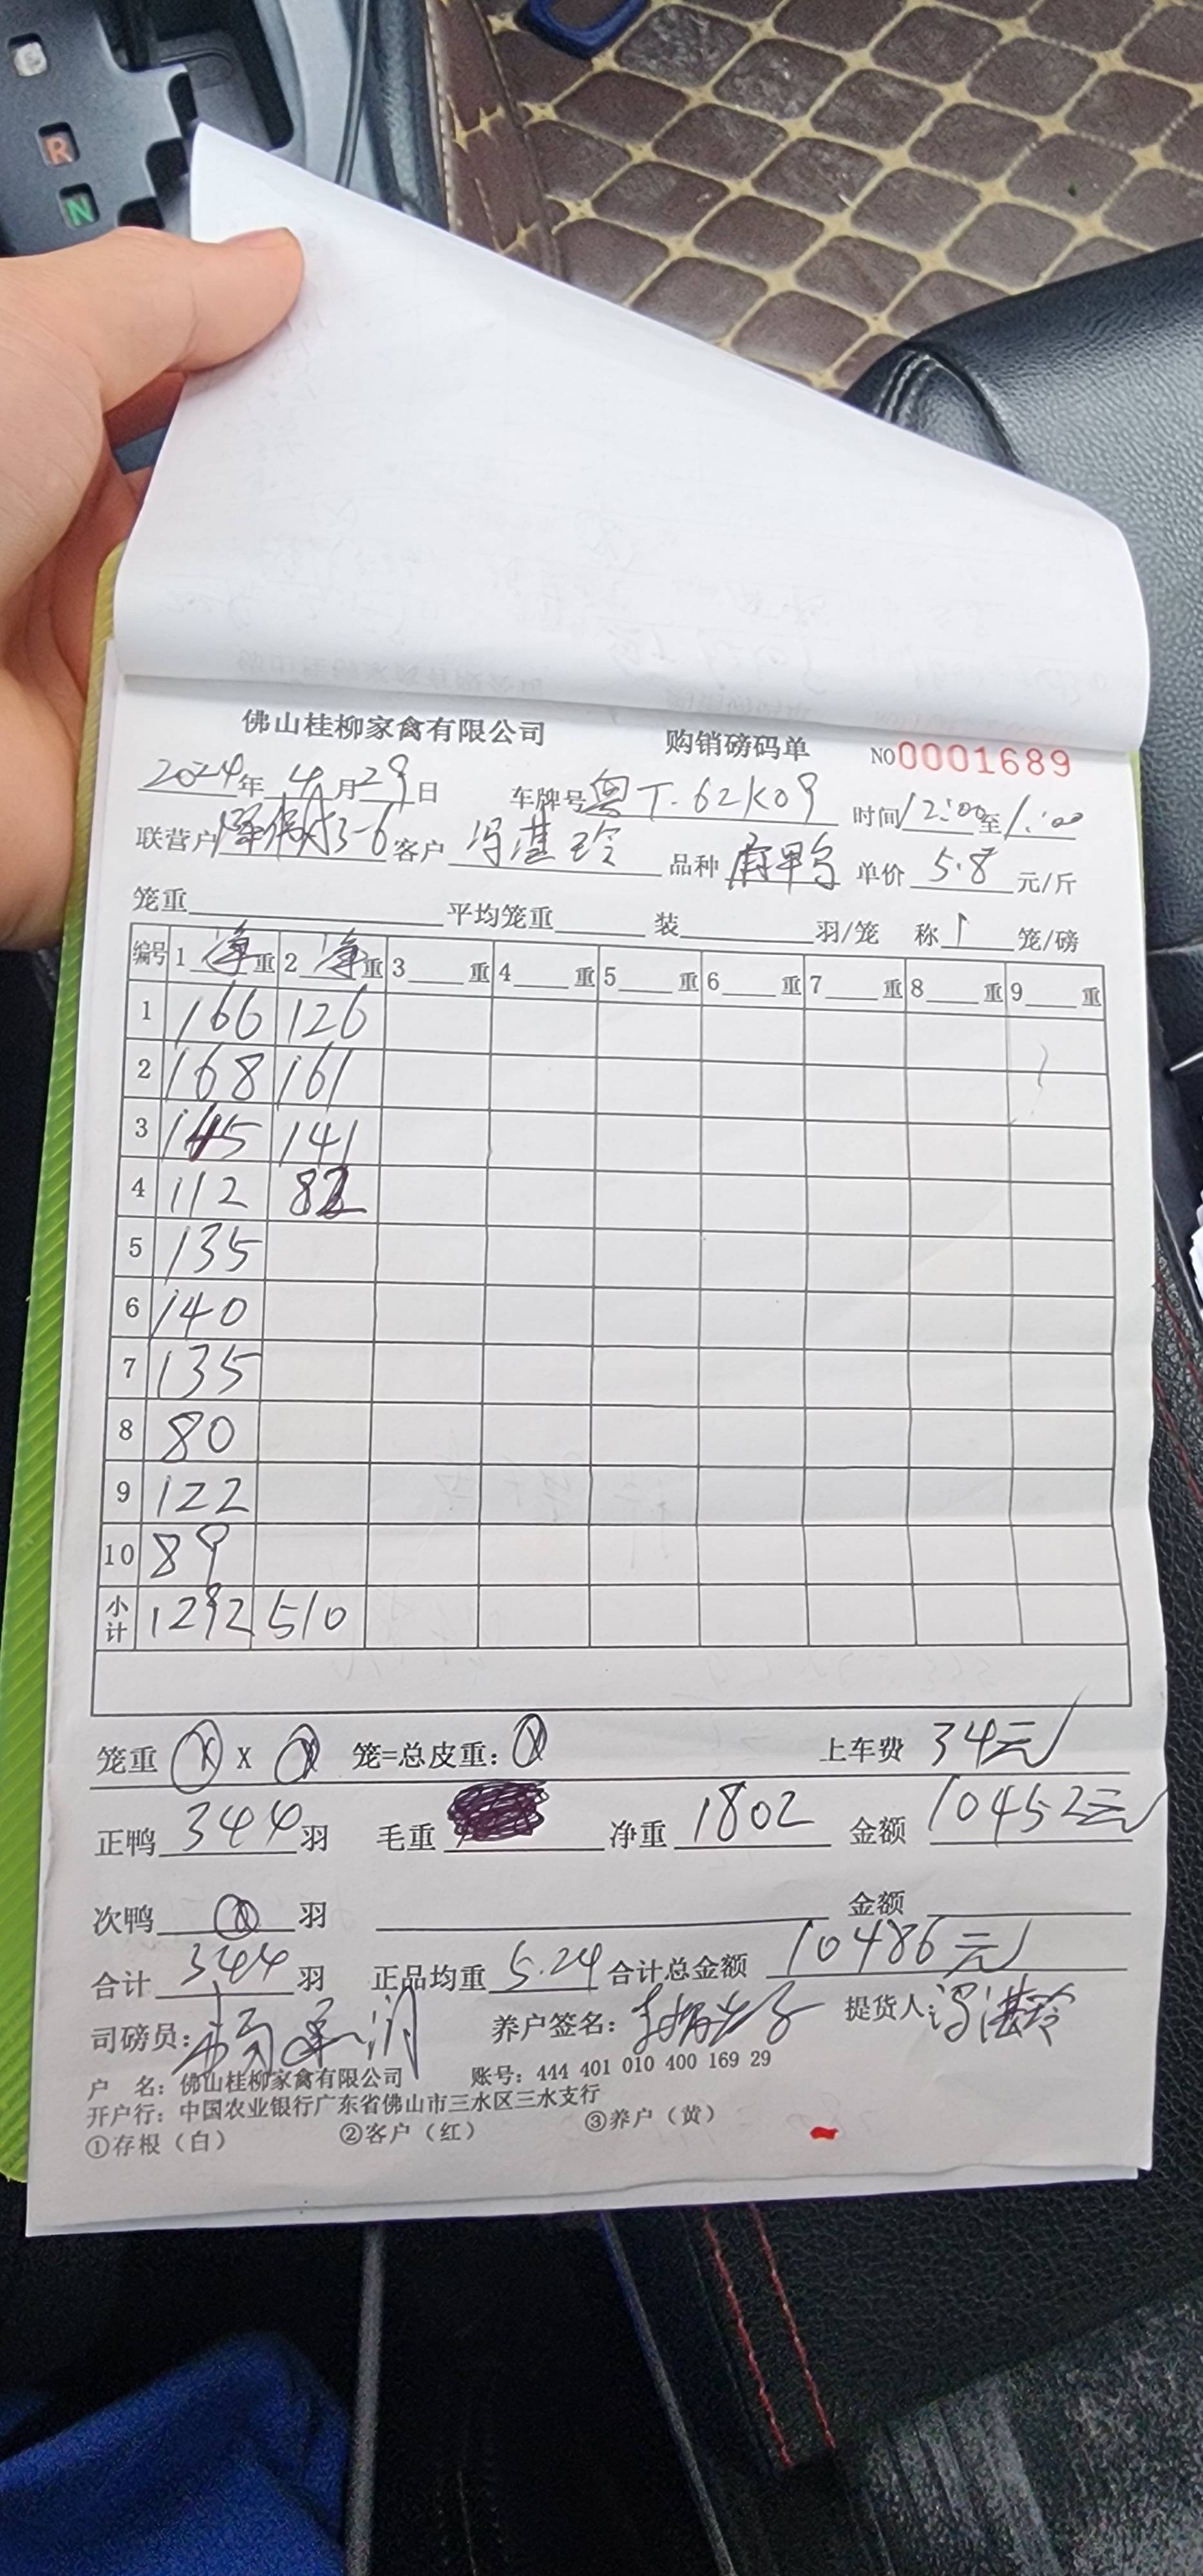 R
N
佛山桂柳家禽有限公司 购销磅码单 NO 0001689
2024年 4月29日 车牌号 粤T.62K09 时间12:00至1:00
联营户 3-6 客户 冯湛玲 品种 麻鸭 单价 5.8 元/斤
笼重 平均笼重 装 羽/笼 称 1 笼/磅
编号 1 净重 2 净重 3 重 4 重 5 重 6 重 7 重 8 重 9 重
1 166 126
2 168 161
3 145 141
4 112 82
5 135
6 140
7 135
8 80
9 122
10 89
小计 1292 510
笼重 X 笼=总皮重: 上车费 34元
正鸭 344 羽 毛重 净重 1802 金额 10452元
次鸭 羽 金额
合计 344 羽 正品均重 5.24 合计总金额 10486元
司磅员: 养户签名: 提货人: 冯湛玲
户 名: 佛山桂柳家禽有限公司 账号: 444 401 010 400 169 29
开户行: 中国农业银行广东省佛山市三水区三水支行
①存根(白) ②客户(红) ③养户(黄)